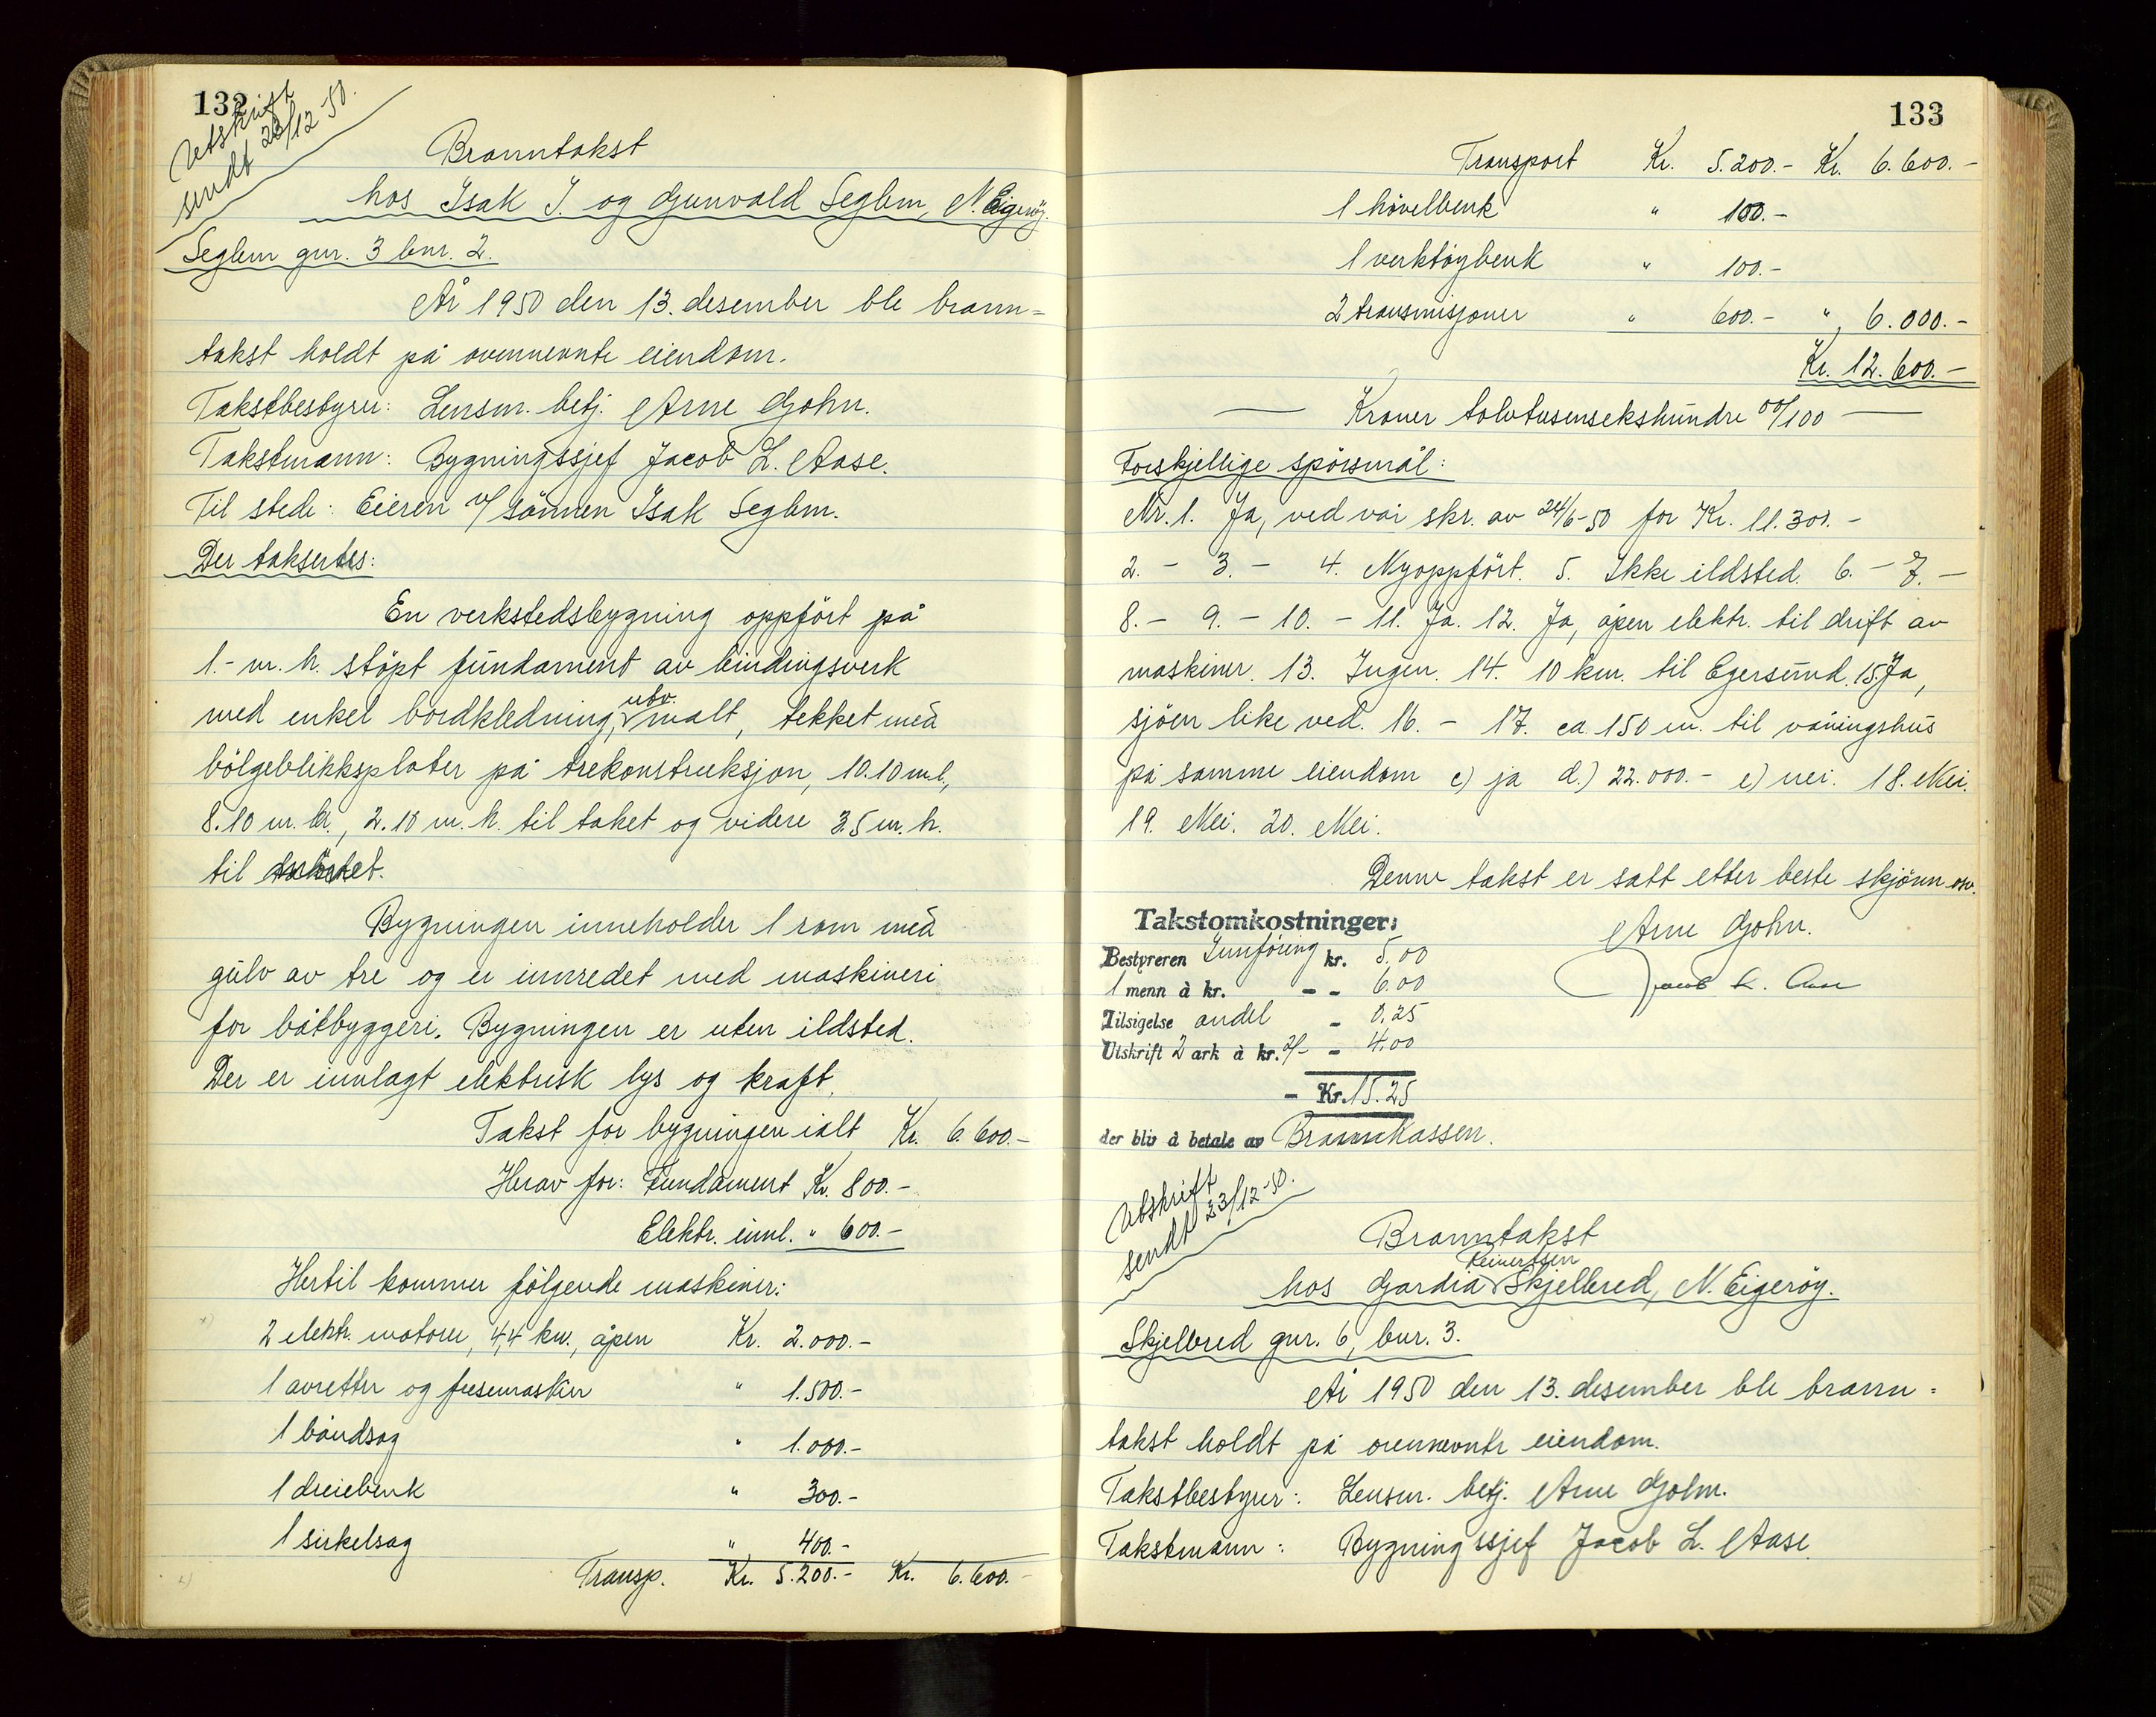 132
Utskrift
sendt 23/12-50.
Branntakst
hos Isak I. og Gunvald Seglem, N. Eigerøy.
Seglem gnr. 3 bnr. 2.
År 1950 den 13. desember ble brann=
takst holdt på ovennevnte eiendom.
Takstbestyrer: Lensm. betj. Arne Gohn.
Takstmann: Bygningssjef Jacob L. Aase.
Til stede: Eieren v/ sönnen Isak Seglem.
Der taksertes:
En verkstedsbygning oppfört på
1.- m. h. stöpt fundament av bindingsverk
med enkel bordkledning, utv. malt, tekket med
bölgeblikksplater på trekonstruksjon, 10.10 m.l.,
8.10 m. br., 2.10 m. h. til taket og videre 3.5 m. h.
til
Bygningen inneholder 1 rom med
gulv av tre og er innredet med maskineri
for båtbyggeri. Bygningen er uten ildsted.
Der er innlagt elektrisk lys og kraft.
Takst for bygningen ialt Kr. 6.600.-
Herav for: Fundament Kr. 800.-
Elektr. innl. " 600.-
Hertil kommer fölgende maskiner:
2 elektr. motorer, 4,4 kw., åpen Kr. 2.000.-
1 avretter og fresemaskin " 1.500.-
1 båndsag " 1.000.-
1 dreiebenk " 300.-
1 sirkelsag " 400.-
Transp. Kr. 5.200.- Kr. 6.600.-
133
Transport Kr. 5.200.- Kr. 6.600.-
1 hövelbenk " 100.-
1 verktöybenk " 100.-
2 transmisjoner " 600.- " 6.000.-
Kr. 12.600.-
— Kroner tolvtusensekshundre 00/100 —
Forskjellige spörsmål:
Nr. 1. Ja, ved vår skr. av 24/6-50 for Kr. 11.300.-
2. - 3. - 4. Nyoppfört. 5. Ikke ildsted. 6. - 7. -
8. - 9. - 10. - 11. Ja. 12. Ja, åpen elektr. til drift av
maskiner. 13. Ingen. 14. 10 km. til Egersund. 15. Ja,
sjöen like ved. 16. - 17. ca. 150 m. til våningshus
på samme eiendom c) ja d.) 22.000.- e) nei. 18. Nei.
19. Nei. 20. Nei.
Denne takst er satt etter beste skjönn osv.
Takstomkostninger:
Arne Gohn.
Bestyreren Innföring kr. 5.00
1 menn à kr. - - 6.00
Jacob L. Aase
Tilsigelse andel - 0.25
Utskrift 2 ark à kr. 2/- - 4.00
- Kr. 15.25
der bliv å betale av Brannkassen.
Utskrift
sendt 23/12-50.
Branntakst
Reinertsen
hos Gardia Skjelbred, N. Eigeröy.
Skjelbred gnr. 6, bnr. 3.
År 1950 den 13. desember ble brann=
takst holdt på ovennevnte eiendom.
Takstbestyrer: Lensm. betj. Arne Gohn.
Takstmann: Bygningssjef Jacob L. Aase.